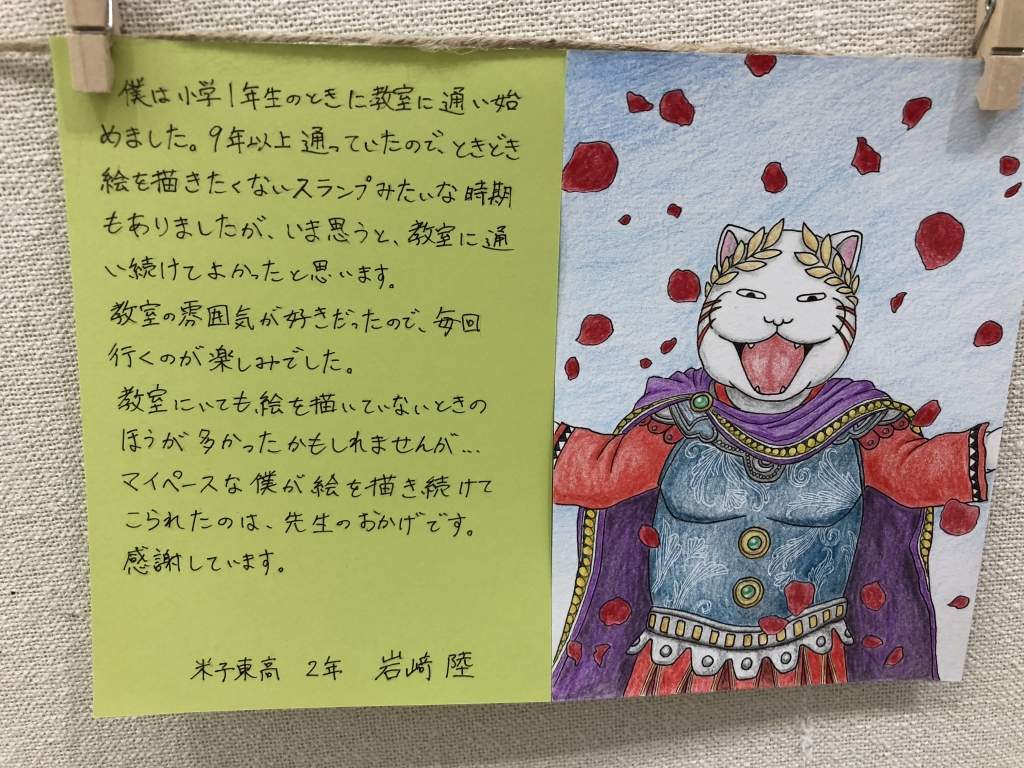 僕は小学1年生のときに教室に通い始
めました。9年以上通っていたので、ときどき
絵を描きたくないスランプみたいな時期
もありましたが、いま思うと、教室に通
い続けてよかったと思います。
教室の雰囲気が好きだったので、毎回
行くのが楽しみでした。
教室にいても、絵を描いていないときの
ほうが多かったかもしれませんが…
マイペースな僕が絵を描き続けて
こられたのは、先生のおかげです。
感謝しています。
米子東高 2年 岩崎 陸